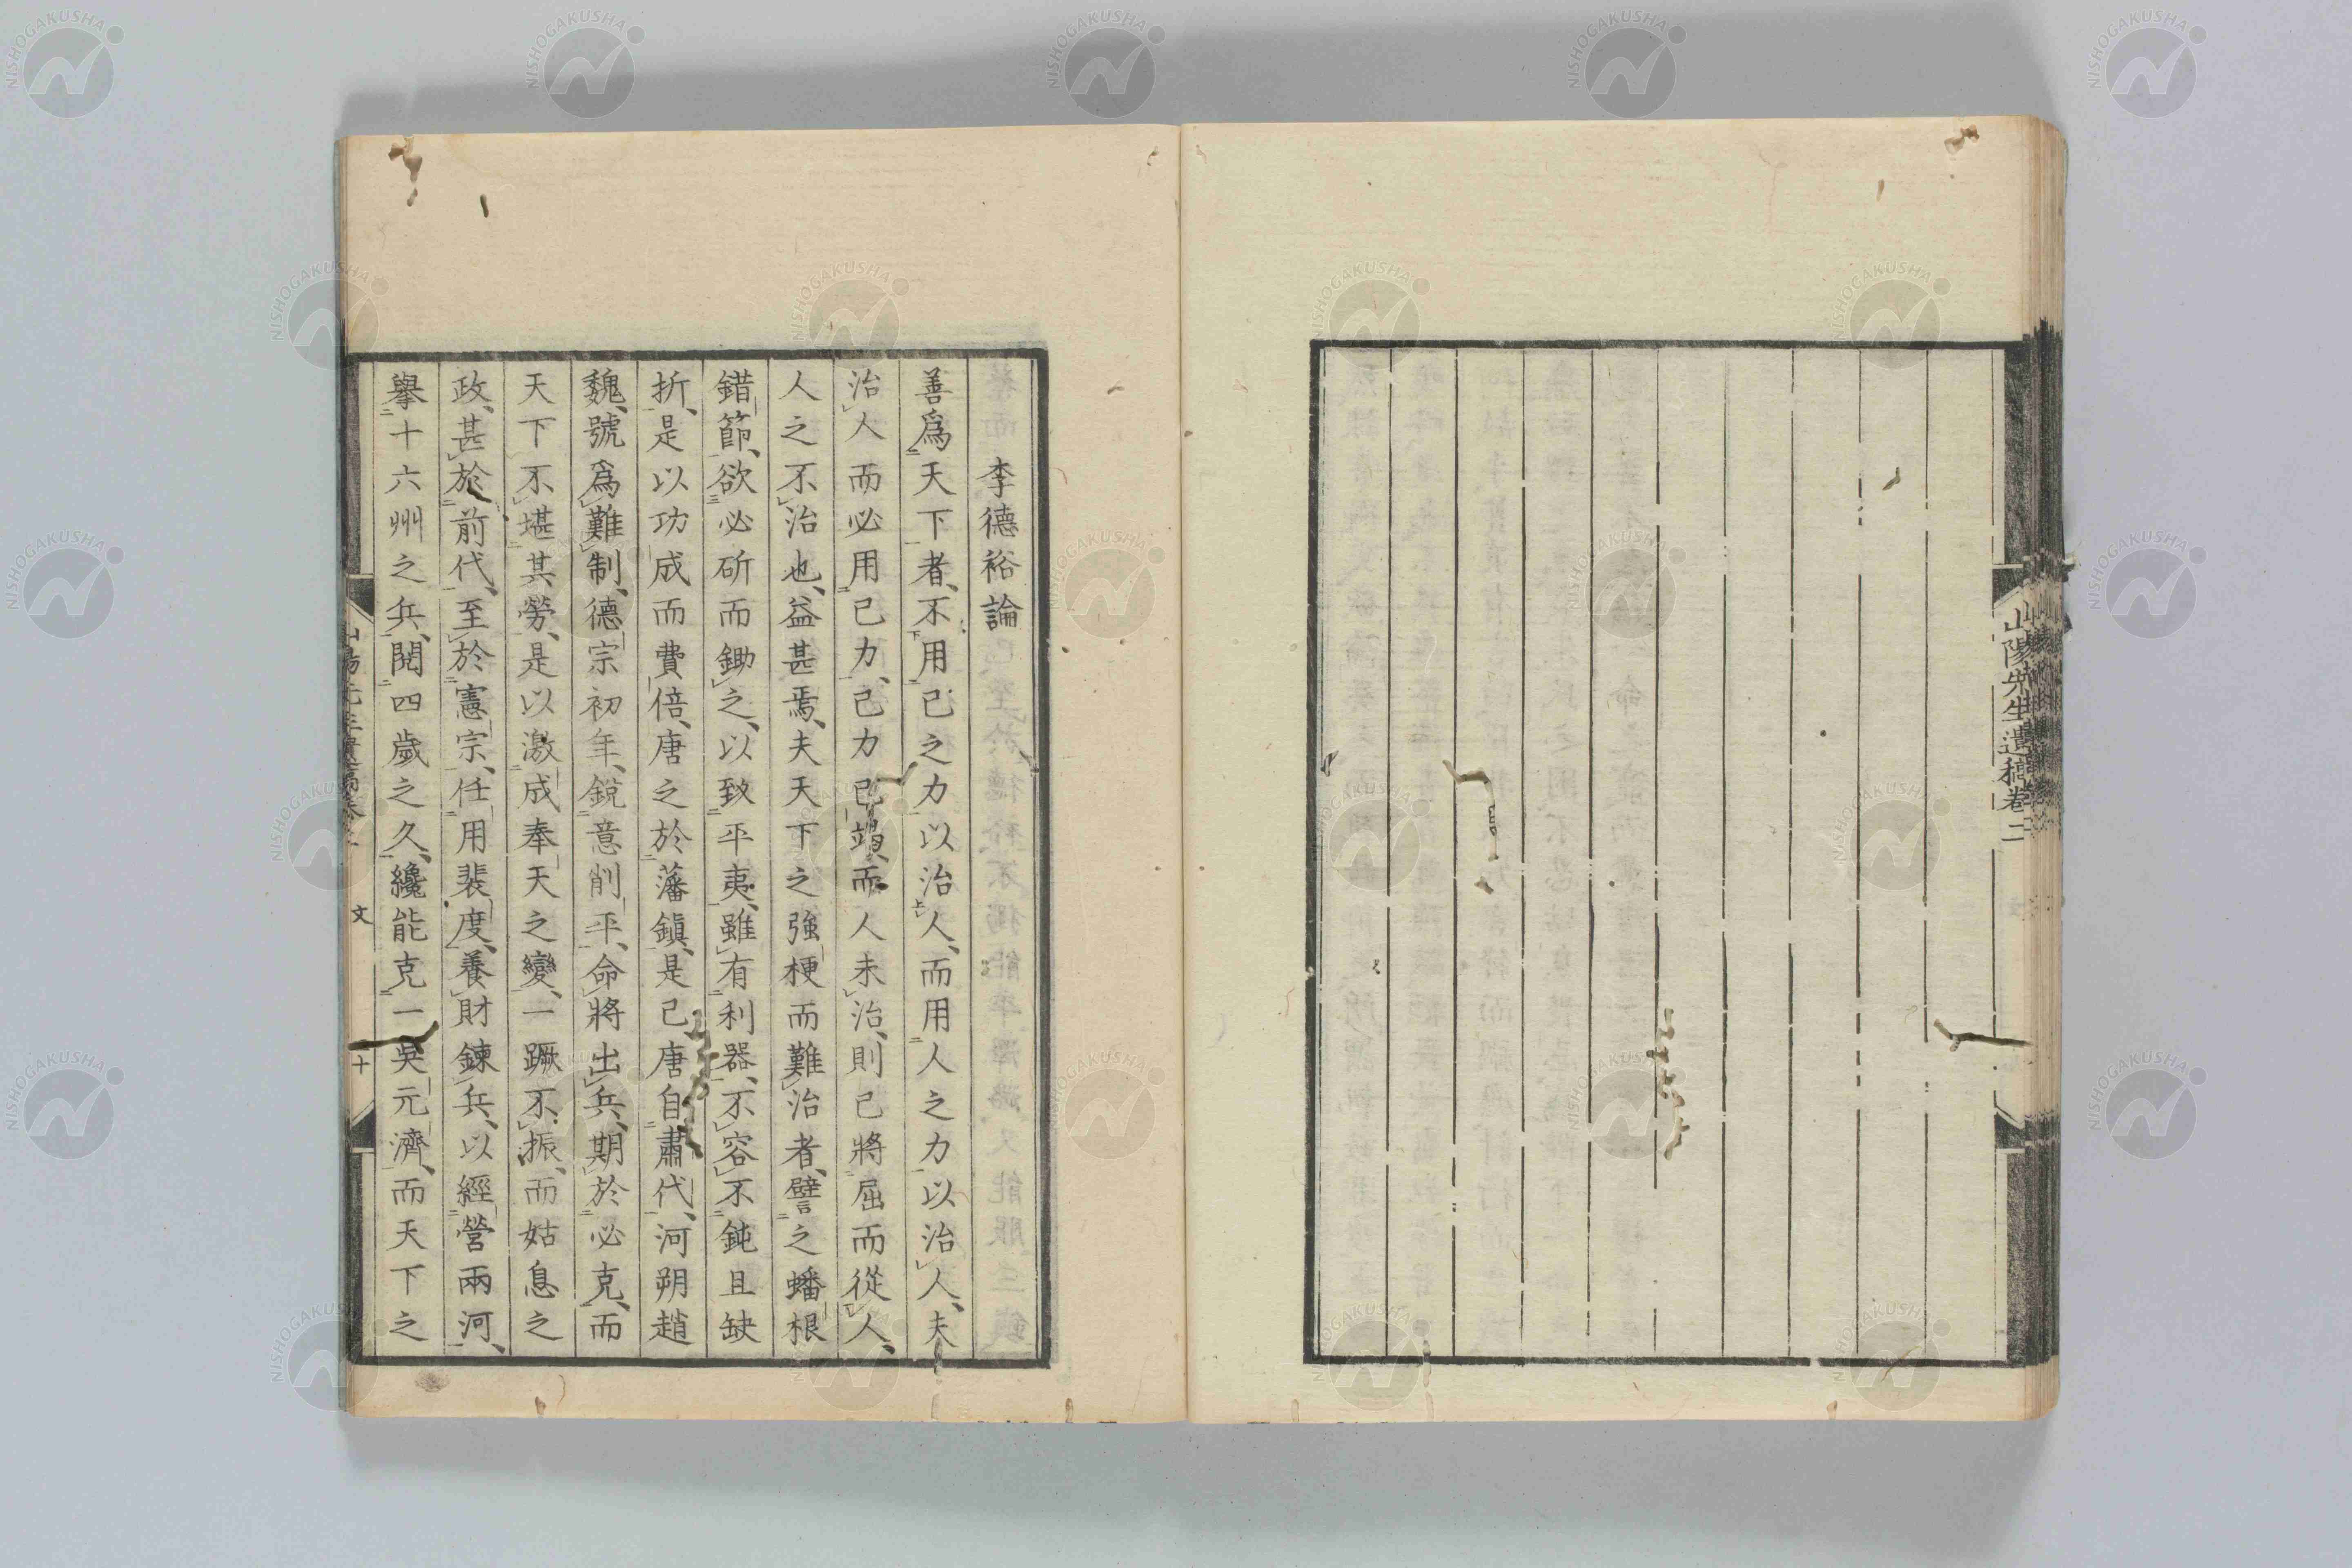 山陽先生遺稿卷二
李德裕論
善爲天下者、不用己之力以治人、而用人之力以治人、夫
治人而必用己力、己力已竭、而人未治、則己將屈而從人、
人之不治也、益甚焉、夫天下之強梗而難治者、譬之蟠根
錯節、欲必斫而鋤之、以致平夷、雖有利器、不容不鈍且缺
折、是以功成而費倍、唐之於藩鎭、是已、唐自肅代、河朔趙
魏、號爲難制、德宗初年、銳意削平、命將出兵、期於必克、而
天下不堪其勞、是以激成奉天之變、一蹶不振、而姑息之
政、甚於前代、至於憲宗、任用裴度、養財鍊兵、以經營兩河、
擧十六州之兵、閱四歲之久、纔能克一吳元濟、而天下之
文
十
NISHOGAKUSHA